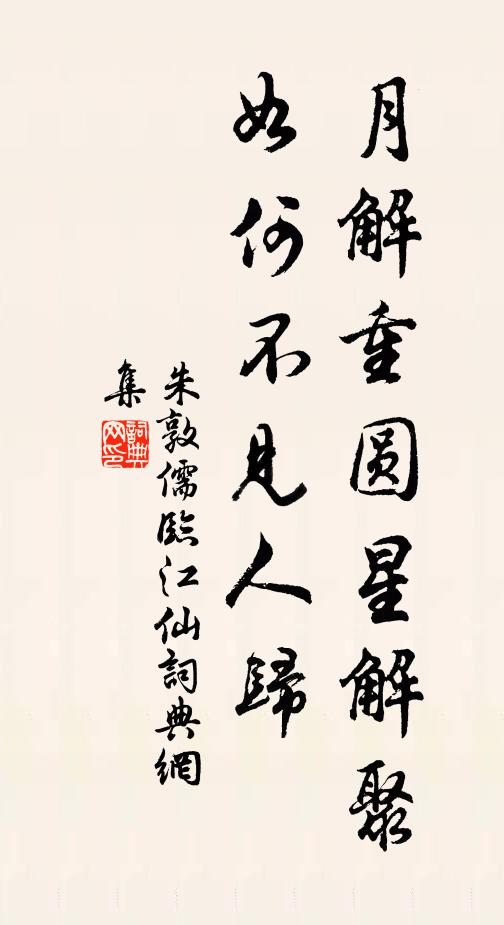 月解重圆星解聚
如何不見人歸
朱敦儒臨江仙詞典網
集
詞典網印